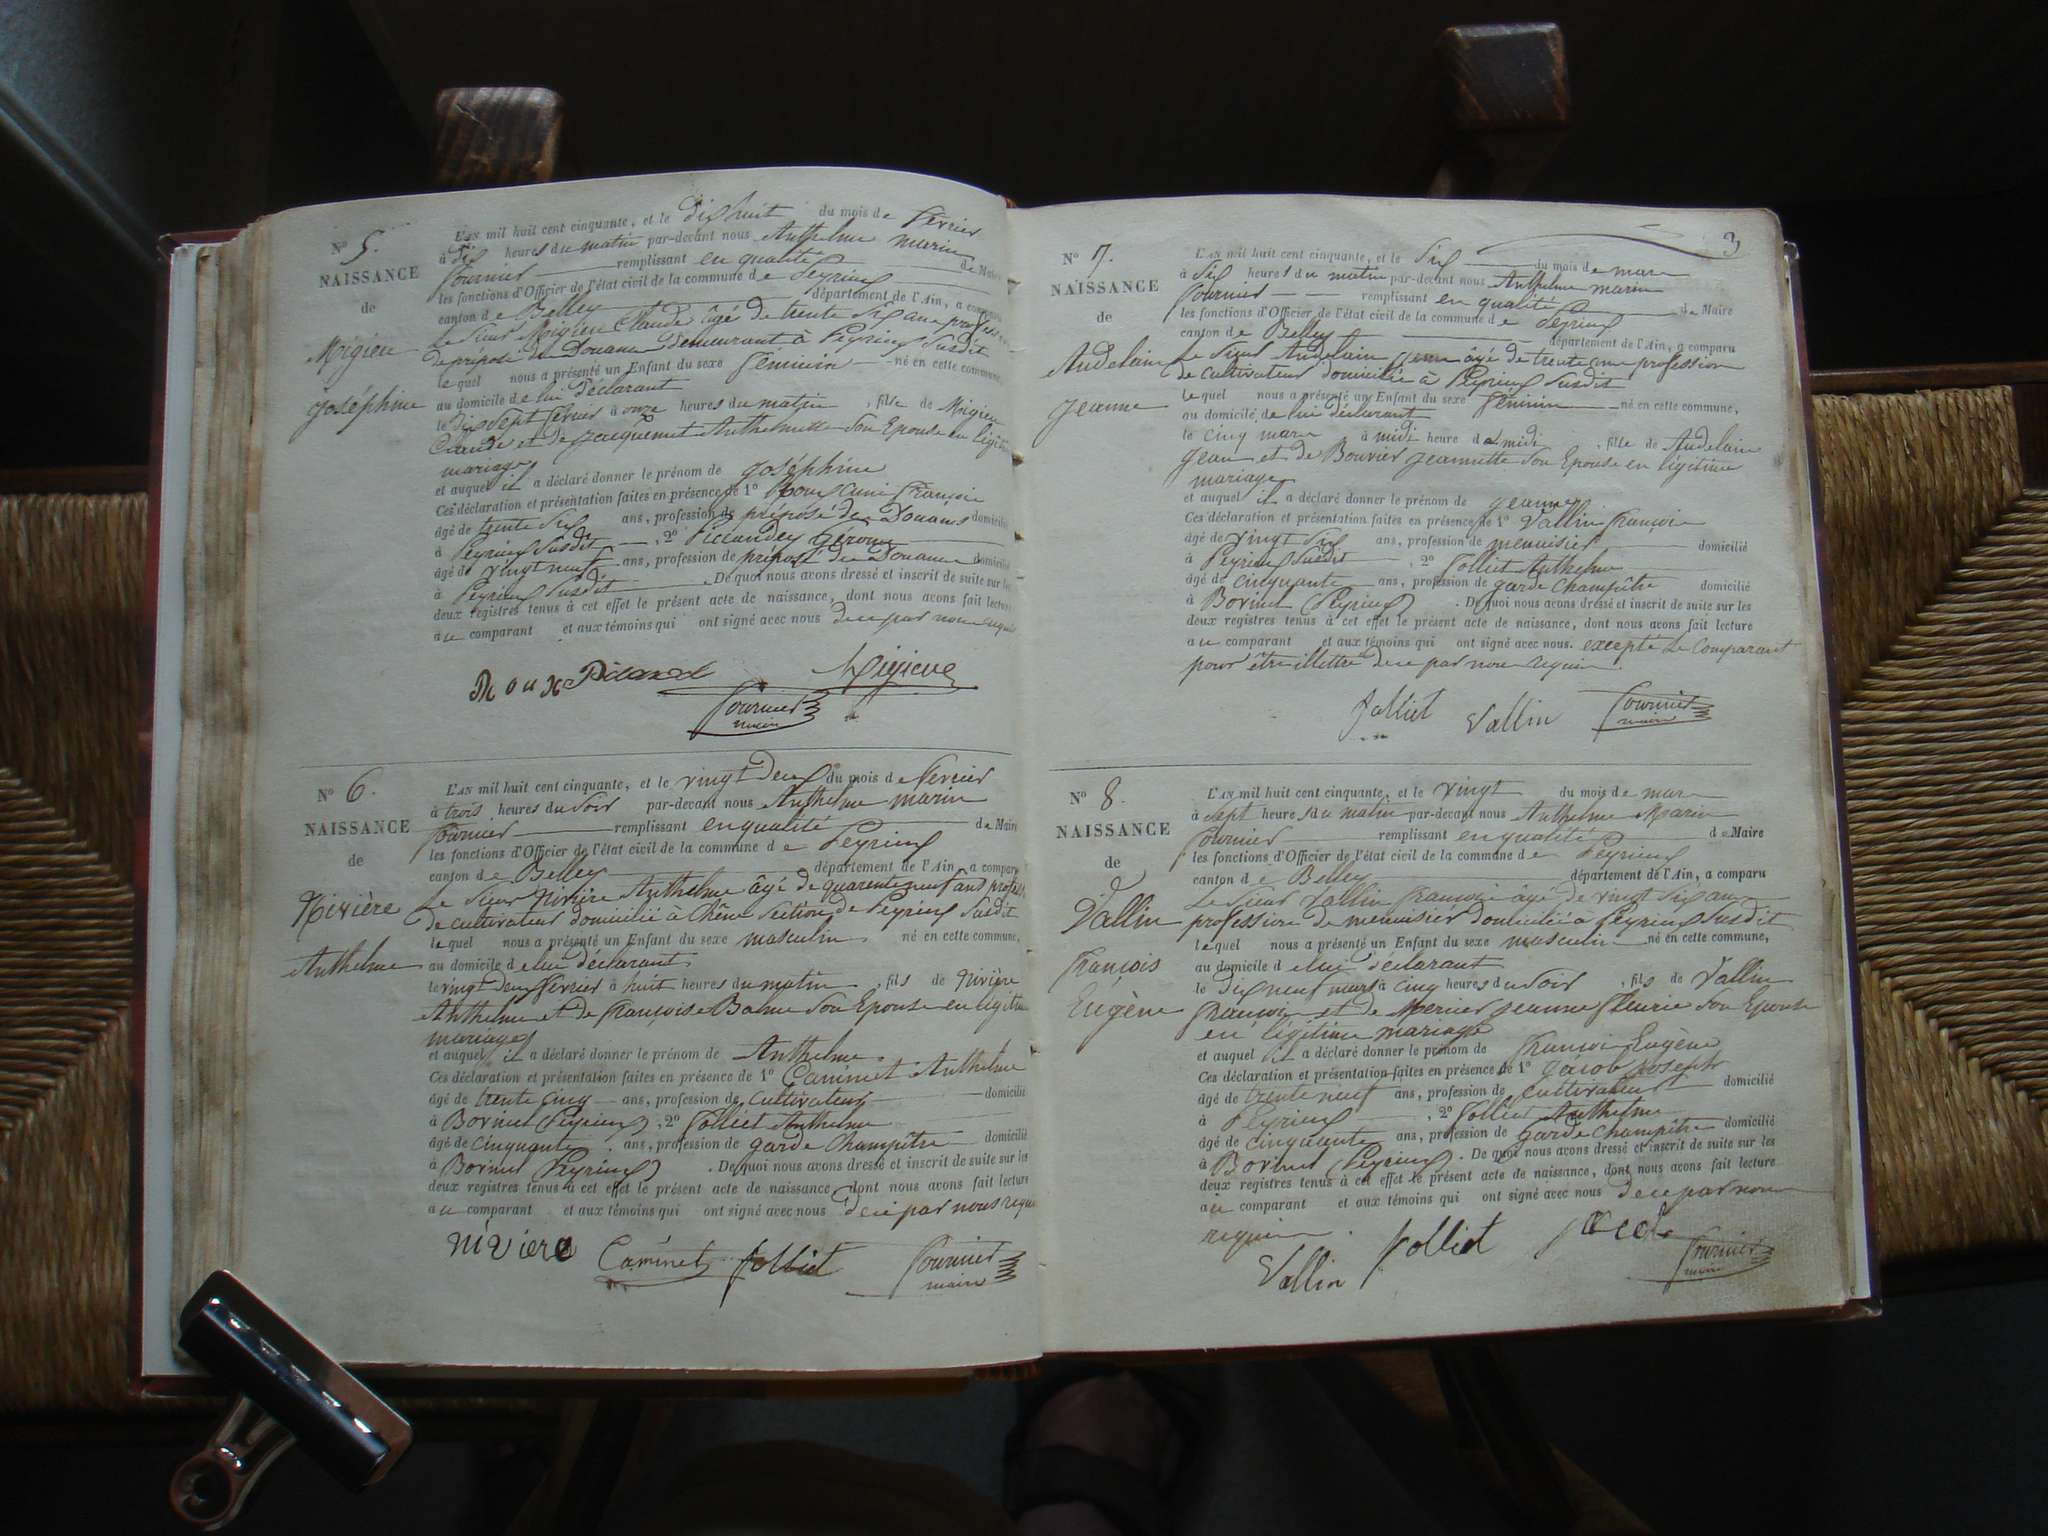 N° 5.
NAISSANCE
de
Migieu
Joséphine
L'AN mil huit cent cinquante, et le dix huit du mois de février
à dix heures du matin par-devant nous Anthelme marin
fournier remplissant en qualité de Maire
les fonctions d'Officier de l'état civil de la commune de Peyrieu
canton de Belley département de l'Ain, a comparu
Le Sieur Migieu Claude âgé de trente six ans profession
de préposé des Douanes demeurant à Peyrieu Susdit
lequel nous a présenté un Enfant du sexe féminin né en cette commune,
au domicile de lui déclarant
le dix sept février à onze heures du matin, fille de Migieu
Claude et de Jacquemet Anthelmette son Epouse en légitime
mariage
et auquel il a déclaré donner le prénom de Joséphine
Ces déclaration et présentation faites en présence de 1° françois
âgé de trente six ans, profession de préposé des Douanes domicilié
à Peyrieu Susdit, 2° Gérome
âgé de vingt neuf ans, profession de préposé des Douanes domicilié
à Peyrieu Susdit. De quoi nous avons dressé et inscrit de suite sur les
deux registres tenus à cet effet le présent acte de naissance, dont nous avons fait lecture
au comparant et aux témoins qui ont signé avec nous de ce par nous requis
Roux Migieux
fournier
maire
N° 6.
NAISSANCE
de
Nivière
Anthelme
L'AN mil huit cent cinquante, et le vingt deux du mois de février
à trois heures du soir par-devant nous Anthelme marin
fournier remplissant en qualité de Maire
les fonctions d'Officier de l'état civil de la commune de Peyrieu
canton de Belley département de l'Ain, a comparu
Le Sieur Nivière Anthelme âgé de quarente neuf ans profession
de cultivateur domicilié à Chêne section de Peyrieu Susdit
lequel nous a présenté un Enfant du sexe masculin né en cette commune,
au domicile de lui déclarant
le vingt deux février à huit heures du matin, fils de Nivière
Anthelme et de françoise Balme son Epouse en légitime
mariage
et auquel il a déclaré donner le prénom de Anthelme
Ces déclaration et présentation faites en présence de 1° Caminet Anthelme
âgé de trente cinq ans, profession de cultivateur domicilié
à Borinet (Peyrieu), 2° Jolliet Anthelme
âgé de cinquante ans, profession de garde champêtre domicilié
à Borinet (Peyrieu). De quoi nous avons dressé et inscrit de suite sur les
deux registres tenus à cet effet le présent acte de naissance, dont nous avons fait lecture
au comparant et aux témoins qui ont signé avec nous de ce par nous requis
nivière Caminet Jolliet fournier
maire
3
N° 7.
NAISSANCE
de
Andelain
Jeanne
L'AN mil huit cent cinquante, et le six du mois de mars
à six heures du matin par-devant nous Anthelme marin
fournier remplissant en qualité de Maire
les fonctions d'Officier de l'état civil de la commune de Peyrieu
canton de Belley département de l'Ain, a comparu
Le Sieur Andelain Jean âgé de trente ans profession
de cultivateur domicilié à Peyrieu Susdit
lequel nous a présenté un Enfant du sexe féminin né en cette commune,
au domicile de lui déclarant
le cinq mars à midi heure de midi, fille de Andelain
Jean et de Bouvier Jeannette son Epouse en légitime
mariage
et auquel il a déclaré donner le prénom de Jeanne
Ces déclaration et présentation faites en présence de 1° Vallin françois
âgé de vingt six ans, profession de menuisier domicilié
à Peyrieu Susdit, 2° Jolliet Anthelme
âgé de cinquante ans, profession de garde champêtre domicilié
à Borinet (Peyrieu). De quoi nous avons dressé et inscrit de suite sur les
deux registres tenus à cet effet le présent acte de naissance, dont nous avons fait lecture
au comparant et aux témoins qui ont signé avec nous. excepté le Comparant
pour être illettré de ce par nous requis.
Jolliet Vallin fournier
maire
N° 8.
NAISSANCE
de
Vallin
François
Eugène
L'AN mil huit cent cinquante, et le vingt du mois de mars
à sept heures du matin par-devant nous Anthelme Marin
fournier remplissant en qualité de Maire
les fonctions d'Officier de l'état civil de la commune de Peyrieu
canton de Belley département de l'Ain, a comparu
Le Sieur Vallin françois âgé de vingt six ans
profession de menuisier domicilié à Peyrieu Susdit
lequel nous a présenté un Enfant du sexe masculin né en cette commune,
au domicile de lui déclarant
le dix neuf mars à cinq heures du soir, fils de Vallin
françois et de Mernier Jeanne fleurie son Epouse
en légitime mariage
et auquel il a déclaré donner le prénom de françois Eugène
Ces déclaration et présentation faites en présence de 1° Jacob Joseph
âgé de trente neuf ans, profession de cultivateur domicilié
à Peyrieu, 2° Jolliet Anthelme
âgé de cinquante ans, profession de garde champêtre domicilié
à Borinet (Peyrieu). De quoi nous avons dressé et inscrit de suite sur les
deux registres tenus à cet effet le présent acte de naissance, dont nous avons fait lecture
au comparant et aux témoins qui ont signé avec nous de ce par nous
requis.
Vallin Jolliet Jacob fournier
maire